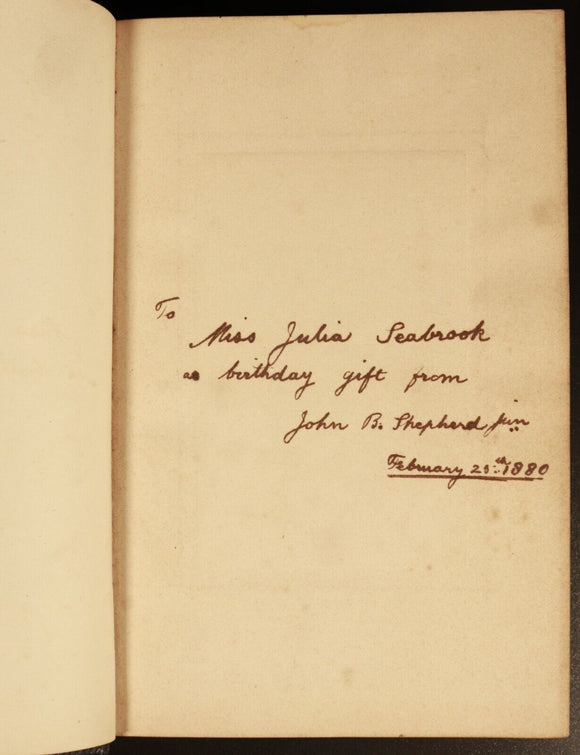 To
Miss Julia Seabrook
as birthday gift from
John B. Shepherd Jun
February 25th 1880